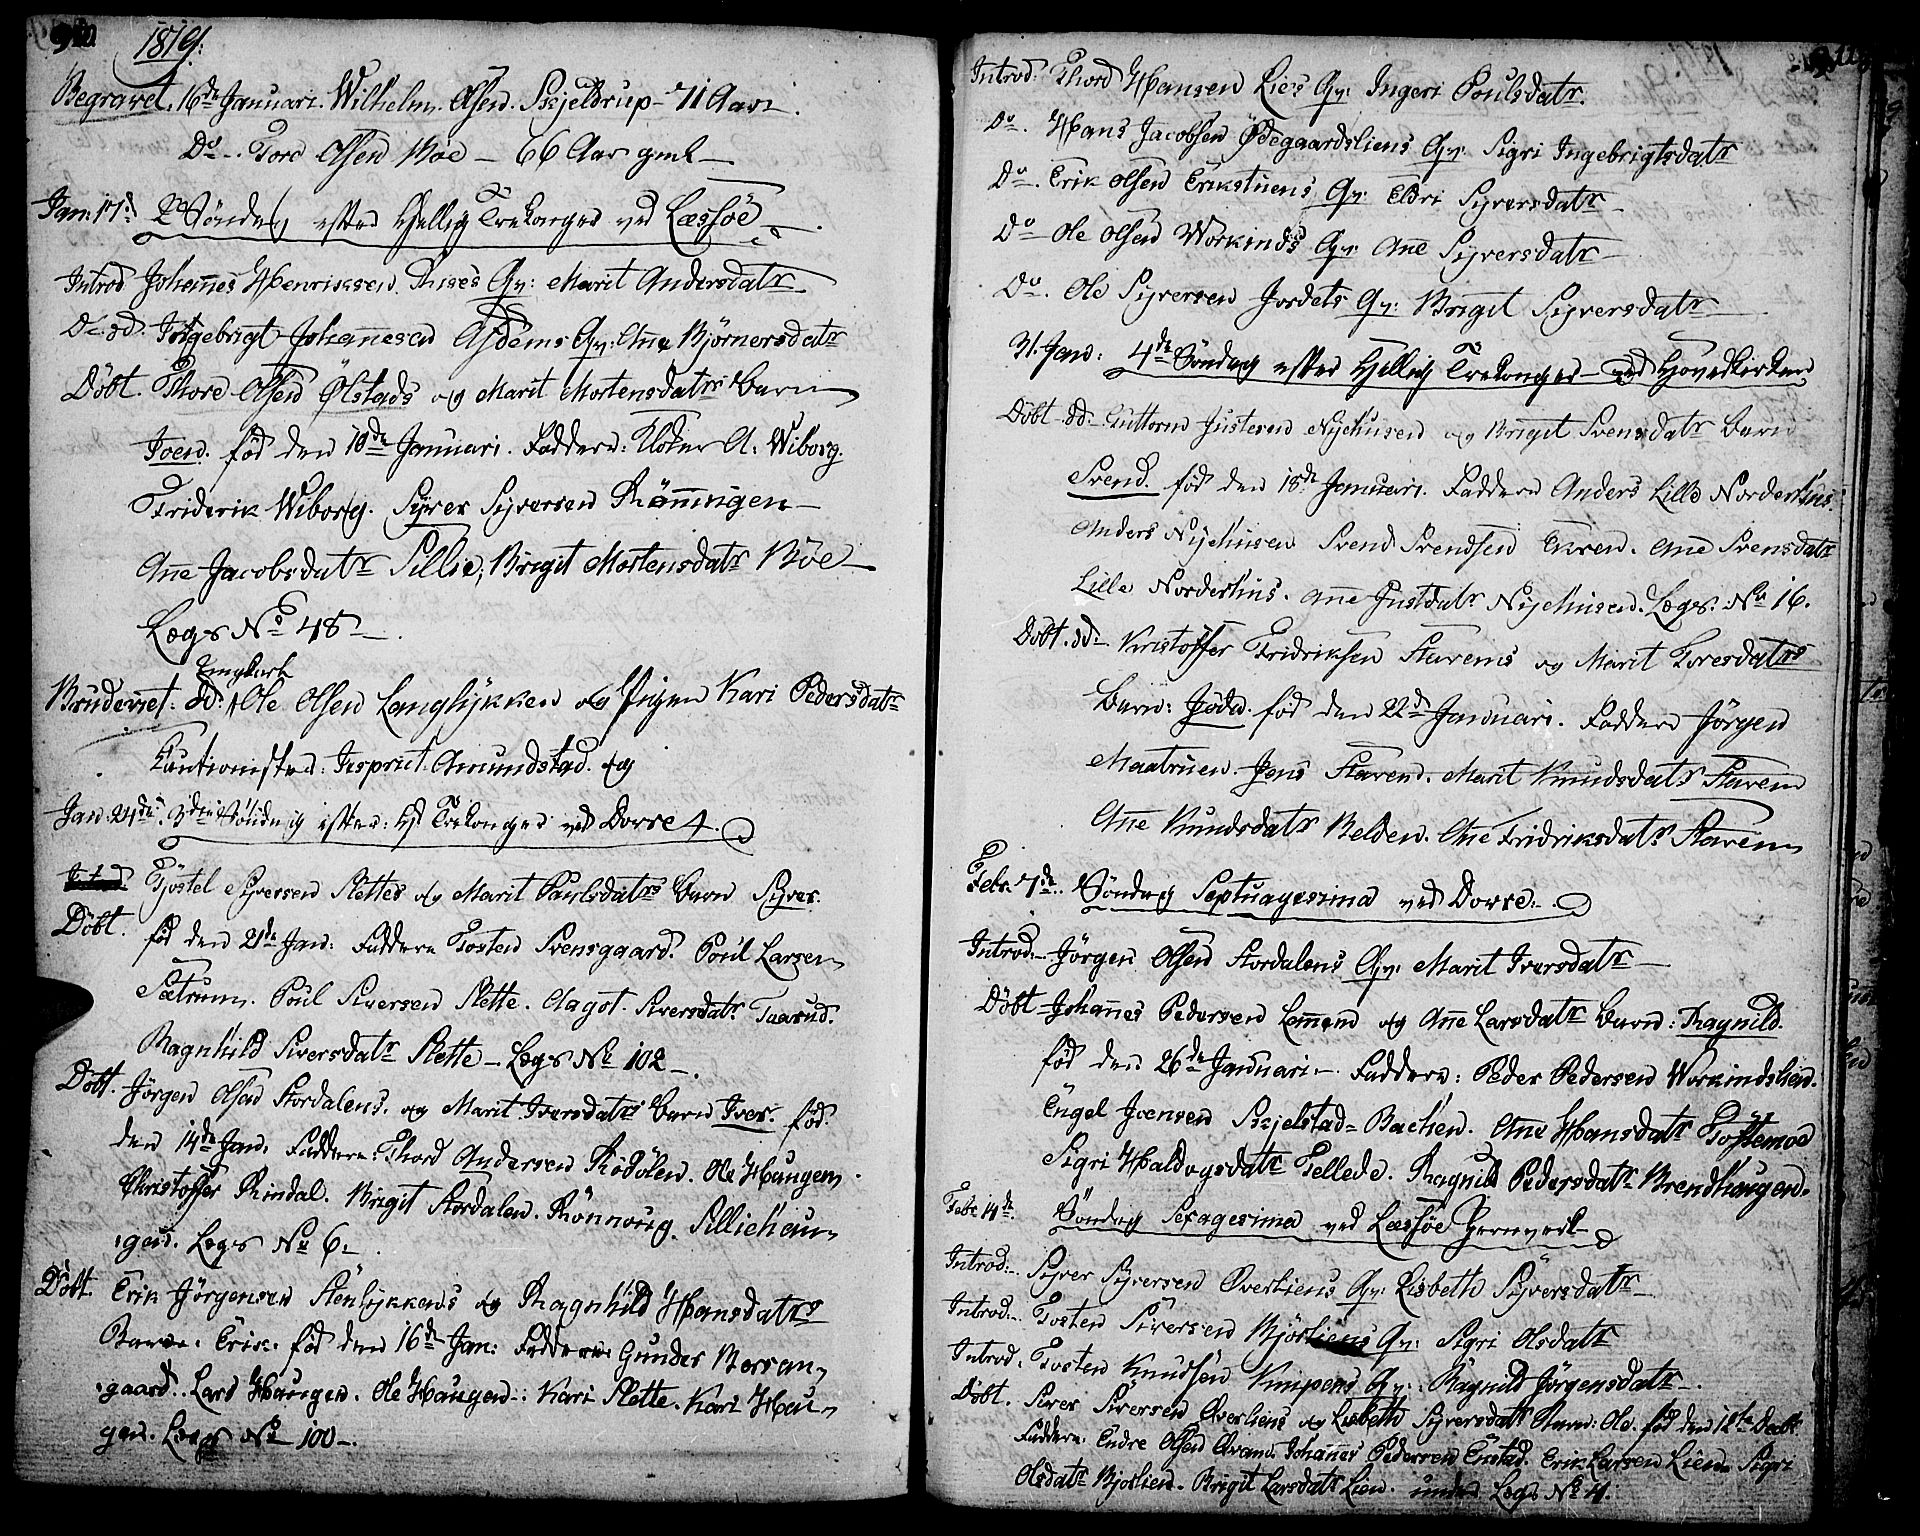 1819.
Begravet, 16de Januari. Wilhelm Olsen Skjeldrup - 71 Aar.
Do. Tord Olsen Moe - 66 Aar gml -
Jan: 17de 2. Søndag efter Hellig Trekonger ved Læssøe
Introd Johannes Henriksen Riises Qv: Marit Andersdatr
Do. d. Ingebrigt Johannesen Asdems Qv: Ane Bjørnersdatr
Döbt. Thore Olsen Ølstads og Marit Mortensdatrs Barn
Joen. fød den 10de Januari. Faddere: Kloker A: Wiborg.
Friderik Wiborg. Syver Syversen Rønningen
Ane Jacobsdatr Lillie, Brigit Mortensdatr Böe
Lægs No 48 -
Ungkarl
Brudeviet: d: Ole Olsen Langlykken og Pigen Kari Pedersdatr
Kautionister: Amundstad. og
Jan 24de. 3die Søndag efter: H Trekonger ved Dovre
Tostel Syversen Slettes og Marit Paulsdatrs Barn Syver.
Döbt. fød den 21de Jan: Faddere Tosten Svensgaard. Poul Larsen
Sætrum. Poul Siversen Slette. Aagot Siversdatr Taarud.
Ragnhild Siversdatr Slette - Lægs No 102 -
Döbt. Jørgen Olsen Stordalens. og Marit Iversdatrs Barn Iver. fød.
den 14de Jan. Faddere: Thord Andersen Rödölen. Ole Haugen
Christoffer Rindal. Brigit Stordalen. Rønnoug Lilliehau-
gen. Lægs No 6.
Döbt. Erik Jørgensen Stenlykkens og Ragnhild Hansdatrs
Barn. Erik. fød den 16de Jan: Faddere Gunder Borran-
gaard. Lars Haugen. Ole Haugen. Kari Slette. Kari Hau-
gen. Lægs No 100 -.
Introd. Thord Hansen Lies Qv: Ingeri Poulsdatr.
Do. Hans Jacobsen Ødegaardsliens Qv: Sigri Ingebrigtsdatr
Do. Erik Olsen Erikstuens Qv: Eldri Syversdatr
Do Ole Olsen Workinds Qv: Ane Syversdatr
Do. Ole Syversen Jordets Qv: Brigit Syversdatr
31. Jan: 4de Søndag efter Hellig Trekonger ved Hovedkirken
Döbt. d: Guttorm Justesen Nyehusen og Brigit Svensdatr Barn
Svend. fød den 18de Januari. Faddere Anders Lille Norderhus.
Anders Nyehusen Svend Svendsen Enren. Ane Svensdatr
Lille Norderhus. Ane Justdatr Nyehusen. Lægs. No 16.
Döbt. d: Kristoffer Fridriksen Stavems og Marit Toresdatrs
Barn: fød den 22de Januari. Faddere Jørgen
Maatruen. Jens Stavem. Marit Knudsdatr Stavem
Ane Knudsdatr Belden. Ane Fridriksdatr Stavem
Febr. 7de. Søndag Septuagesima ved Dovre.
Introd. Jørgen Olsen Stordalens Qv: Marit Iversdatr
Döbt Johannes Pedersen Lemmen og Ane Larsdatr Barn: Ragnild.
fød den 26de Januari. Faddere: Peder Pedersen Workindslien.
Engel Joensen Skjelstad-Backen. Ane Hansdatr Toftemoe
Sigri Haldogsdatr Tellede. Ragnild Pedersdatr Brendhaugen.
Febr 14de. Søndag Sexagesima ved Læssøe Jernverk
Introd. Syver Syversen Øverliens Qv: Lisbeth Syversdatr
Introd. Tosten Siversen Bjørliens Qv: Sigri Olsdatr
Introd. Tosten Knudsen Kimpens Qv: Ragnild Jørgensdatr
Döbt. Siver Siversen Øverliens og Lisbeth Syversdatr Barn: Ole. fød den 12te Decbr
Faddere. Endre Olsen Qvam. Johannes Pedersen Enstad. Erik Larsen Lien. Sigri
Olsdatr Bjorlien. Brigit Larsdatr Lien. under Lægs No 4.